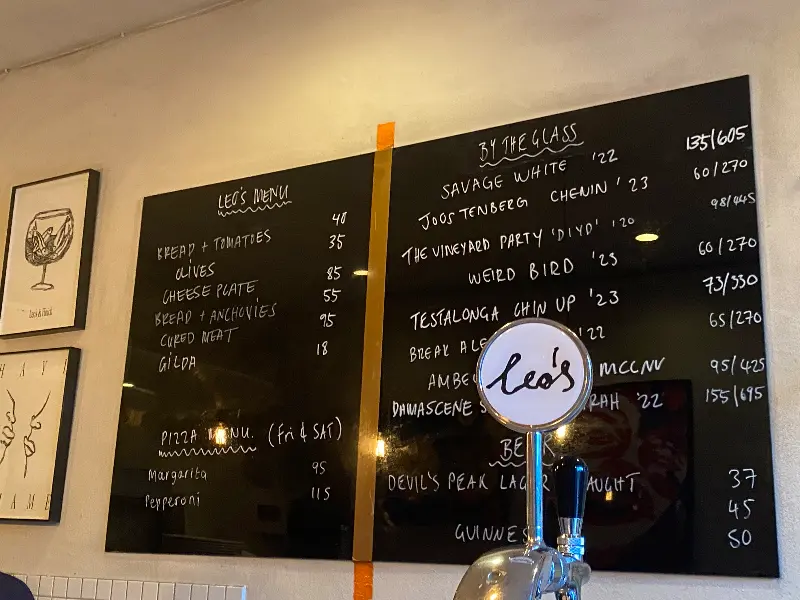 LEO'S MENU
BREAD + TOMATOES 40
OLIVES 35
CHEESE PLATE 85
BREAD + ANCHOVIES 55
CURED MEAT 95
GILDA 18
PIZZA MENU. (Fri & SAT)
Margarita 95
Pepperoni 115
BY THE GLASS
SAVAGE WHITE '22 135/605
JOOSTENBERG CHENIN '23 60/270
THE VINEYARD PARTY 'DIYD' '20 98/445
WEIRD BIRD '23 60/270
TESTALONGA CHIN UP '23 73/330
BREAK '22 65/270
MCCNV 95/425
DAMASCENE '22 155/695
DEVIL'S PEAK LAGER 37
45
GUINNESS 50
leo's